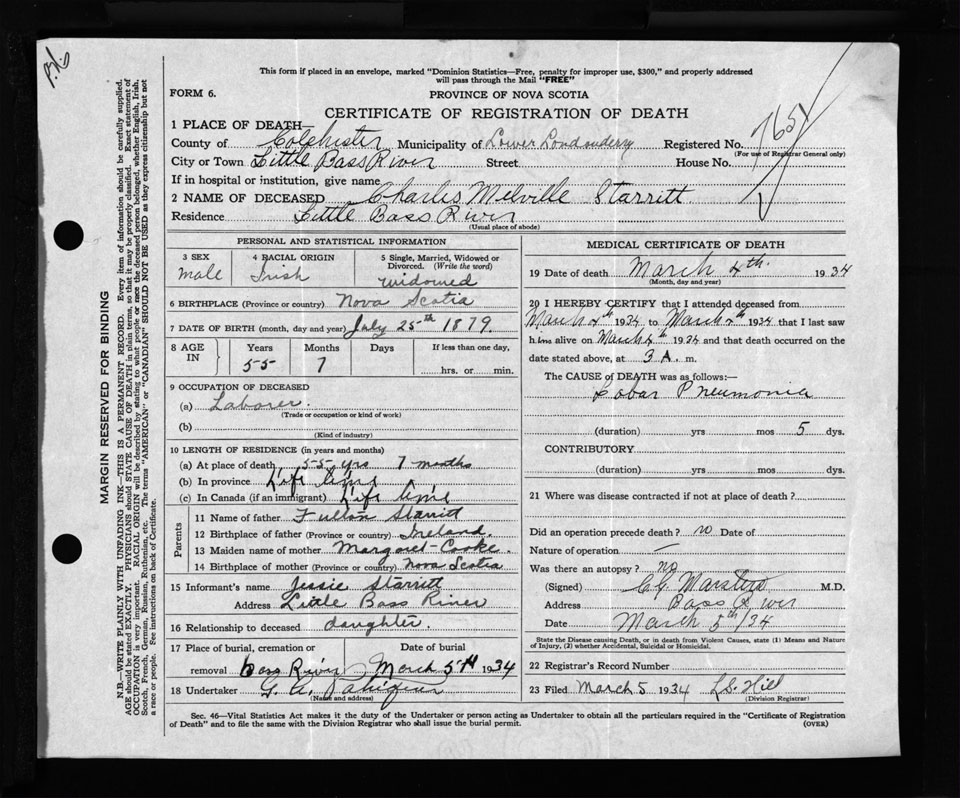 This form if placed in an envelope, marked "Dominion Statistics—Free, penalty for improper use, $300," and properly addressed
will pass through the Mail "FREE"
FORM 6.
PROVINCE OF NOVA SCOTIA
CERTIFICATE OF REGISTRATION OF DEATH
1 PLACE OF DEATH—
County of Colchester Municipality of Lower Londonderry Registered No. 7651
(For use of Registrar General only)
City or Town Little Bass River Street House No.
If in hospital or institution, give name
2 NAME OF DECEASED Charles Melville Starritt
Residence Little Bass River
(Usual place of abode)
PERSONAL AND STATISTICAL INFORMATION
3 SEX 4 RACIAL ORIGIN 5 Single, Married, Widowed or
Divorced. (Write the word)
male Irish Widowed
6 BIRTHPLACE (Province or country) Nova Scotia
7 DATE OF BIRTH (month, day and year) July 25th 1879.
8 AGE IN Years Months Days If less than one day,
55 7 hrs. or min.
9 OCCUPATION OF DECEASED
(a) Laborer.
(Trade or occupation or kind of work)
(b)
(Kind of industry)
10 LENGTH OF RESIDENCE (in years and months)
(a) At place of death 55 yrs 7 months
(b) In province Life time
(c) In Canada (if an immigrant) Life time
Parents
11 Name of father Fulton Starritt
12 Birthplace of father (Province or country) Ireland.
13 Maiden name of mother Margaret Cooke.
14 Birthplace of mother (Province or country) Nova Scotia
15 Informant's name Jessie Starritt
Address Little Bass River
16 Relationship to deceased daughter.
17 Place of burial, cremation or Date of burial
removal Bass River March 5th 1934
18 Undertaker G. A.
(Name and address)
MEDICAL CERTIFICATE OF DEATH
19 Date of death March 4th 1934
(Month, day and year)
20 I HEREBY CERTIFY that I attended deceased from
March 4th 1934 to March 4th 1934 that I last saw
him alive on March 4th 1934 and that death occurred on the
date stated above, at 3 A. m.
The CAUSE of DEATH was as follows:—
Lobar Pneumonia
(duration) yrs mos 5 dys.
CONTRIBUTORY
(duration) yrs mos dys.
21 Where was disease contracted if not at place of death?
Did an operation precede death? no Date of
Nature of operation —
Was there an autopsy? no
(Signed) M.D.
Address Bass River
Date March 5th/34
State the Disease causing Death, or in death from Violent Causes, state (1) Means and Nature
of Injury, (2) whether Accidental, Suicidal or Homicidal.
22 Registrar's Record Number
23 Filed March 5 1934 L.S. Hill
(Division Registrar)
Sec. 46—Vital Statistics Act makes it the duty of the Undertaker or person acting as Undertaker to obtain all the particulars required in the "Certificate of Registration
of Death" and to file the same with the Division Registrar who shall issue the burial permit. (OVER)
MARGIN RESERVED FOR BINDING
N.B.—WRITE PLAINLY WITH UNFADING INK—THIS IS A PERMANENT RECORD. Every item of information should be carefully supplied.
AGE should be stated EXACTLY. PHYSICIANS should STATE CAUSE OF DEATH in plain terms, so that it may be properly classified. Exact statement of
OCCUPATION is very important. RACIAL ORIGIN will be described by stating to what people or race the deceased person belonged, whether English, Irish,
Scotch, French, German, Russian, Ruthenian, etc. The terms "AMERICAN" or "CANADIAN" SHOULD NOT BE USED as they express citizenship but not
a race or people. See instructions on back of Certificate.